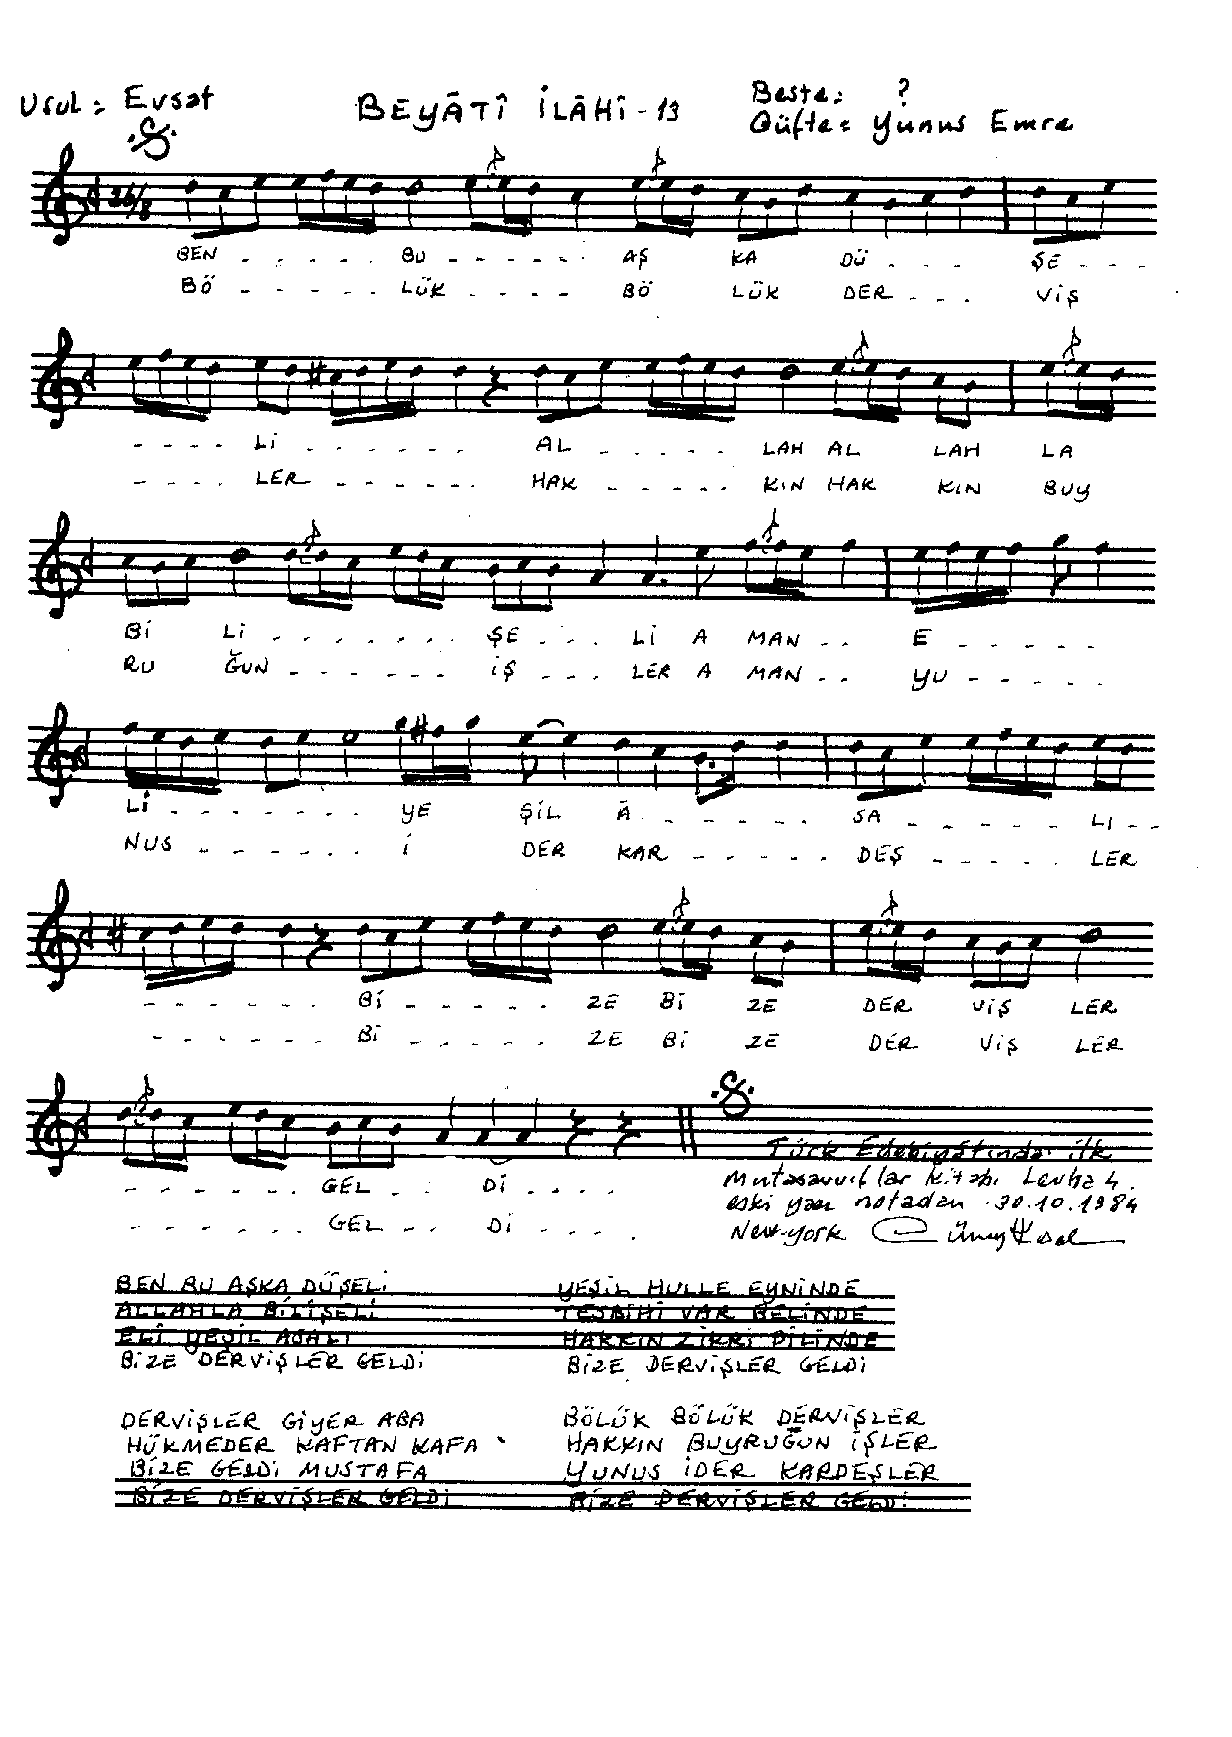 Usul: Evsat
BEYÂTÎ İLÂHÎ - 13
Beste: ?
Güfte: Yunus Emre
26/8
BEN - - - - - BU - - - - - AŞ KA DÜ - - - ŞE - - -
BÖ - - - - - LÜK - - - - BÖ LÜK DER - - - VİŞ
- - - - Lİ - - - - - - AL - - - - - LAH AL LAH LA
- - - - LER - - - - - - HAK - - - - - KIN HAK KIN BUY
Bİ Lİ - - - - - - - ŞE - - - Lİ A MAN - - E - - - - -
RU ĞUN - - - - - - İŞ - - - LER A MAN - - YU - - - - -
Lİ - - - - - - - YE ŞİL Â - - - - - - SA - - - - - LI - -
NUS - - - - - - İ DER KAR - - - - - DEŞ - - - - - LER
- - - - - - Bİ - - - - - ZE Bİ ZE DER VİŞ LER
- - - - - - Bİ - - - - - ZE Bİ ZE DER VİŞ LER
- - - - - - GEL - - Dİ - - - -
- - - - - - GEL - - Dİ - - - -
Türk Edebiyâtında ilk
Mutasavvıflar kitabı Levha 4.
eski yazı notadan 30.10.1984
New-york
BEN BU AŞKA DÜŞELİ
ALLAHLA BİLİŞELİ
ELİ YEŞİL ASALI
BİZE DERVİŞLER GELDİ
YEŞİL HULLE EYNİNDE
TESBİHİ VAR BELİNDE
HAKKIN ZİKRİ DİLİNDE
BİZE DERVİŞLER GELDİ
DERVİŞLER GİYER ABA
HÜKMEDER KAFTAN KAFA
BİZE GELDİ MUSTAFA
BİZE DERVİŞLER GELDİ
BÖLÜK BÖLÜK DERVİŞLER
HAKKIN BUYRUĞUN İŞLER
YUNUS İDER KARDEŞLER
BİZE DERVİŞLER GELDİ